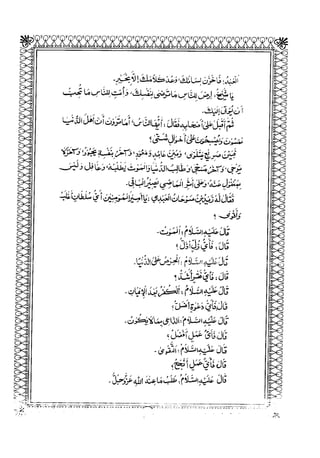 الْعَبْدُ، فَاخْزُنْ لِسَانَكَ وَعُدَّ كَلَامَكَ إِلَّا بِخَيْرٍ.
يَا شَيْخُ، ارْضَ لِلنَّاسِ مَا تَرْضَى لِنَفْسِكَ، وَآتِ لِلنَّاسِ مَا تُحِبُّ
أَنْ يُؤْتَى إِلَيْكَ.
ثُمَّ أَقْبَلَ عَلَى أَصْحَابِهِ فَقَالَ: أَيُّهَا النَّاسُ، أَمَا تَرَوْنَ أَنَّ أَهْلَ الدُّنْيَا
يُمْسُونَ وَيُصْبِحُونَ عَلَى أَحْوَالٍ شَتَّى؟
فَبَيْنَ صَرِيعٍ يَتَلَوَّى، وَبَيْنَ عَائِدٍ وَمَعُودٍ، وَآخَرُ بِنَفْسِهِ يَجُودُ، وَآخَرُ لَا
يُرْجَى، وَآخَرُ مُسَجًّى، وَطَالِبُ الدُّنْيَا وَالْمَوْتُ يَطْلُبُهُ، وَغَافِلٌ وَلَيْسَ
بِمَغْفُولٍ عَنْهُ، وَعَلَى أَثَرِ الْمَاضِي يَصِيرُ الْبَاقِي.
فَقَالَ لَهُ زَيْدُ بْنُ صُوحَانَ الْعَبْدِيُّ: يَا أَمِيرَ الْمُؤْمِنِينَ أَيُّ سُلْطَانٍ أَغْلَبُ
وَأَقْوَى؟
قَالَ عَلَيْهِ السَّلَامُ: الْهَوَى.
قَالَ: فَأَيُّ ذُلٍّ أَذَلُّ؟
قَالَ عَلَيْهِ السَّلَامُ: الْحِرْصُ عَلَى الدُّنْيَا.
قَالَ: فَأَيُّ فَقْرٍ أَشَدُّ؟
قَالَ عَلَيْهِ السَّلَامُ: الْكُفْرُ بَعْدَ الْإِيمَانِ.
قَالَ: فَأَيُّ دَعْوَةٍ أَضَلُّ؟
قَالَ عَلَيْهِ السَّلَامُ: الدَّاعِي بِمَا لَا يَكُونُ.
قَالَ: فَأَيُّ عَمَلٍ أَفْضَلُ؟
قَالَ عَلَيْهِ السَّلَامُ: التَّقْوَى.
قَالَ: فَأَيُّ عَمَلٍ أَنْجَحُ؟
قَالَ عَلَيْهِ السَّلَامُ: طَلَبُ مَا عِنْدَ اللَّهِ عَزَّ وَجَلَّ.